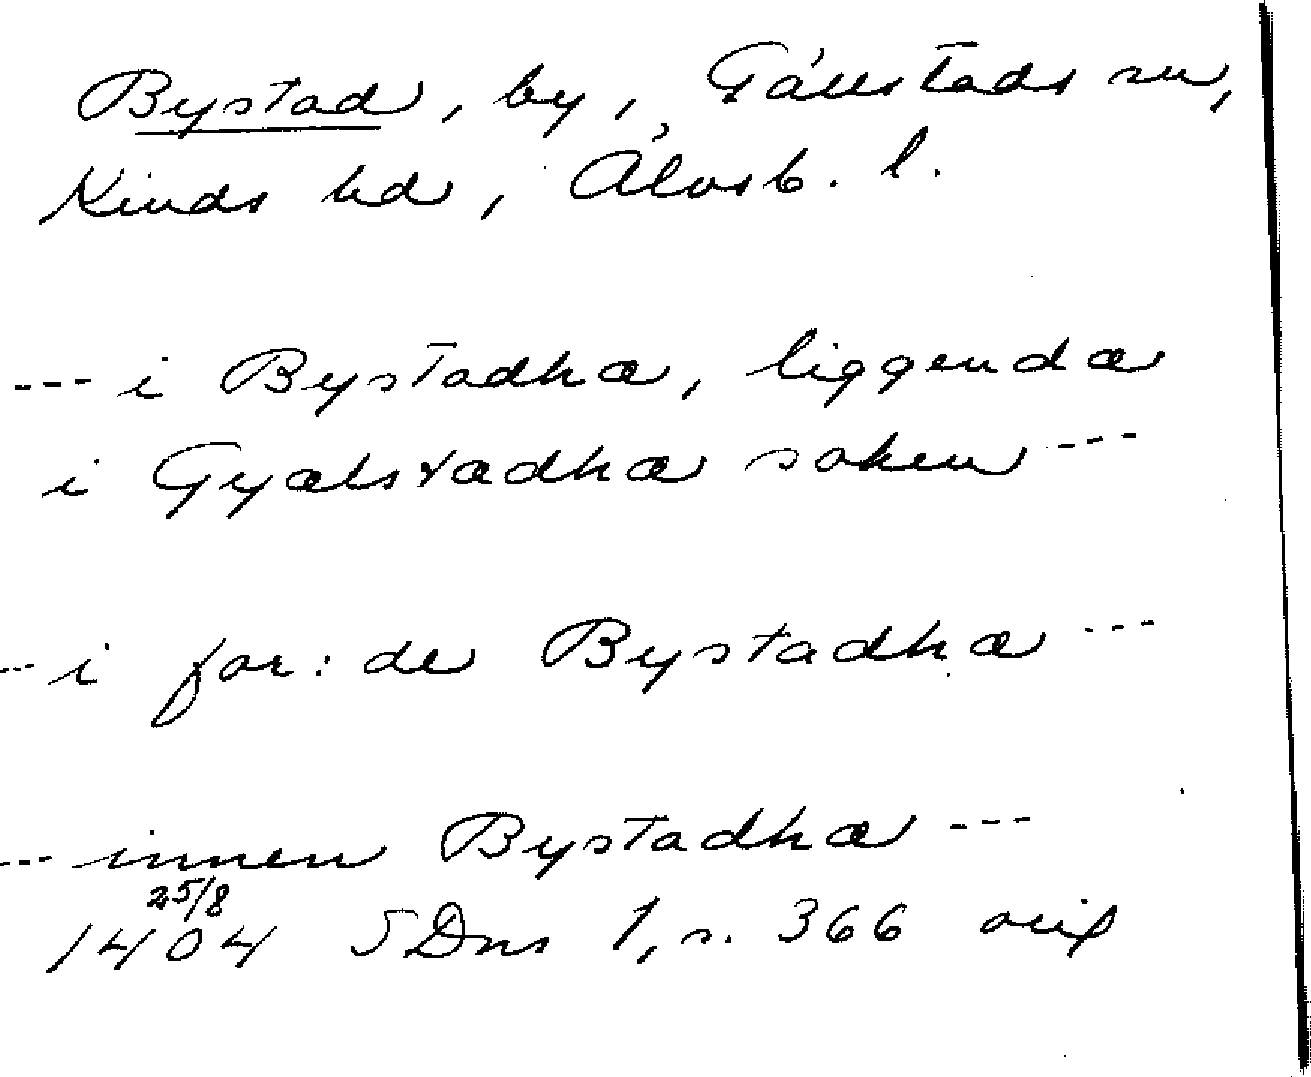 Bystad, by, Gällstads sn,
Kinds hd, Älvsb. l.
--- i Bystadhæ, liggendæ
i Gyælstadhæ soken ---
--- i for: de Bystadhæ ---
--- innen Bystadhæ ---
25/8
1404 SDns 1, s. 366 orig